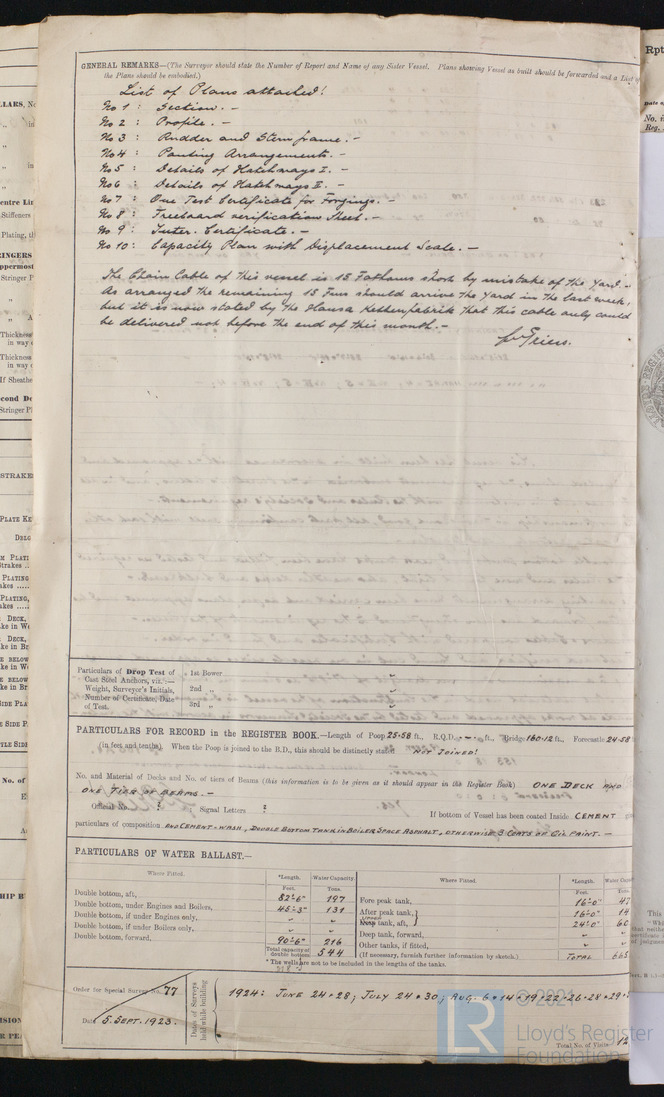 GENERAL REMARKS—(The Surveyor should state the Number of Report and Name of any Sister Vessel. Plans showing Vessel as built should be forwarded and a List of
the Plans should be embodied.)
List of Plans attached!
No 1 : Section. -
No 2 : Profile. -
No 3 : Rudder and Sternframe. -
No 4 : Panting Arrangements. -
No 5 : Details of Hatchways I. -
No 6 : Details of Hatchways II. -
No 7 : One Test Certificate for Forgings. -
No 8 : Freeboard verification Sheet. -
No 9 : Inter. Certificate. -
No 10: Capacity Plan with Displacement Scale. -
The Chain Cable of this vessel is 15 Fathoms short by mistake of the Yard. -
As arranged the remaining 15 Fms should arrive the Yard in the last week,
but it is now stated by the Hansa Kettenfabrik that this cable only could
be delivered not before the end of this month. -
Particulars of Drop Test of
Cast Steel Anchors, viz.:—
Weight, Surveyor's Initials,
Number of Certificate, Date
of Test.
1st Bower
2nd "
3rd "
PARTICULARS FOR RECORD in the REGISTER BOOK.—Length of Poop 25·58 ft., R.Q.D. - ft., Bridge 160·12 ft., Forecastle 24·58
(in feet and tenths). When the Poop is joined to the B.D., this should be distinctly stated. NOT JOINED!
No. and Material of Decks and No. of tiers of Beams (this information is to be given as it should appear in the Register Book) ONE DECK AND
ONE TIER OF BEAMS. -
Official No. ? Signal Letters ? If bottom of Vessel has been coated Inside CEMENT
particulars of composition AND CEMENT-WASH, DOUBLE BOTTOM TANK IN BOILER SPACE ASPHALT, OTHERWISE 3 COATS OF OIL PAINT. -
PARTICULARS OF WATER BALLAST.—
Where Fitted. *Length. Water Capacity Where Fitted. *Length. Water Capacity
Feet. Tons. Feet. Tons.
Double bottom, aft, 82'-6" 197 Fore peak tank, 16'-0" 47
Double bottom, under Engines and Boilers, 45'-3" 131 After peak tank, 16'-0" 14
Double bottom, if under Engines only, " " tank, aft, 24'-0" 60
Double bottom, if under Boilers only, " " Deep tank, forward, " "
Double bottom, forward, 90'-6" 216 Other tanks, if fitted, " "
Total capacity of double bottom 544 (If necessary, furnish further information by sketch.) TOTAL 665
* The wells are not to be included in the lengths of the tanks.
Order for Special Survey No. 77
Date 5. SEPT. 1923.
Dates of Surveys held while building
1924: JUNE 24 + 28; JULY 24 + 30; AUG. 6 + 14 + 19 + 22 + 26 + 28 + 29 +
Total No. of Visits 12
© 2021
LR
Lloyd's Register
Foundation